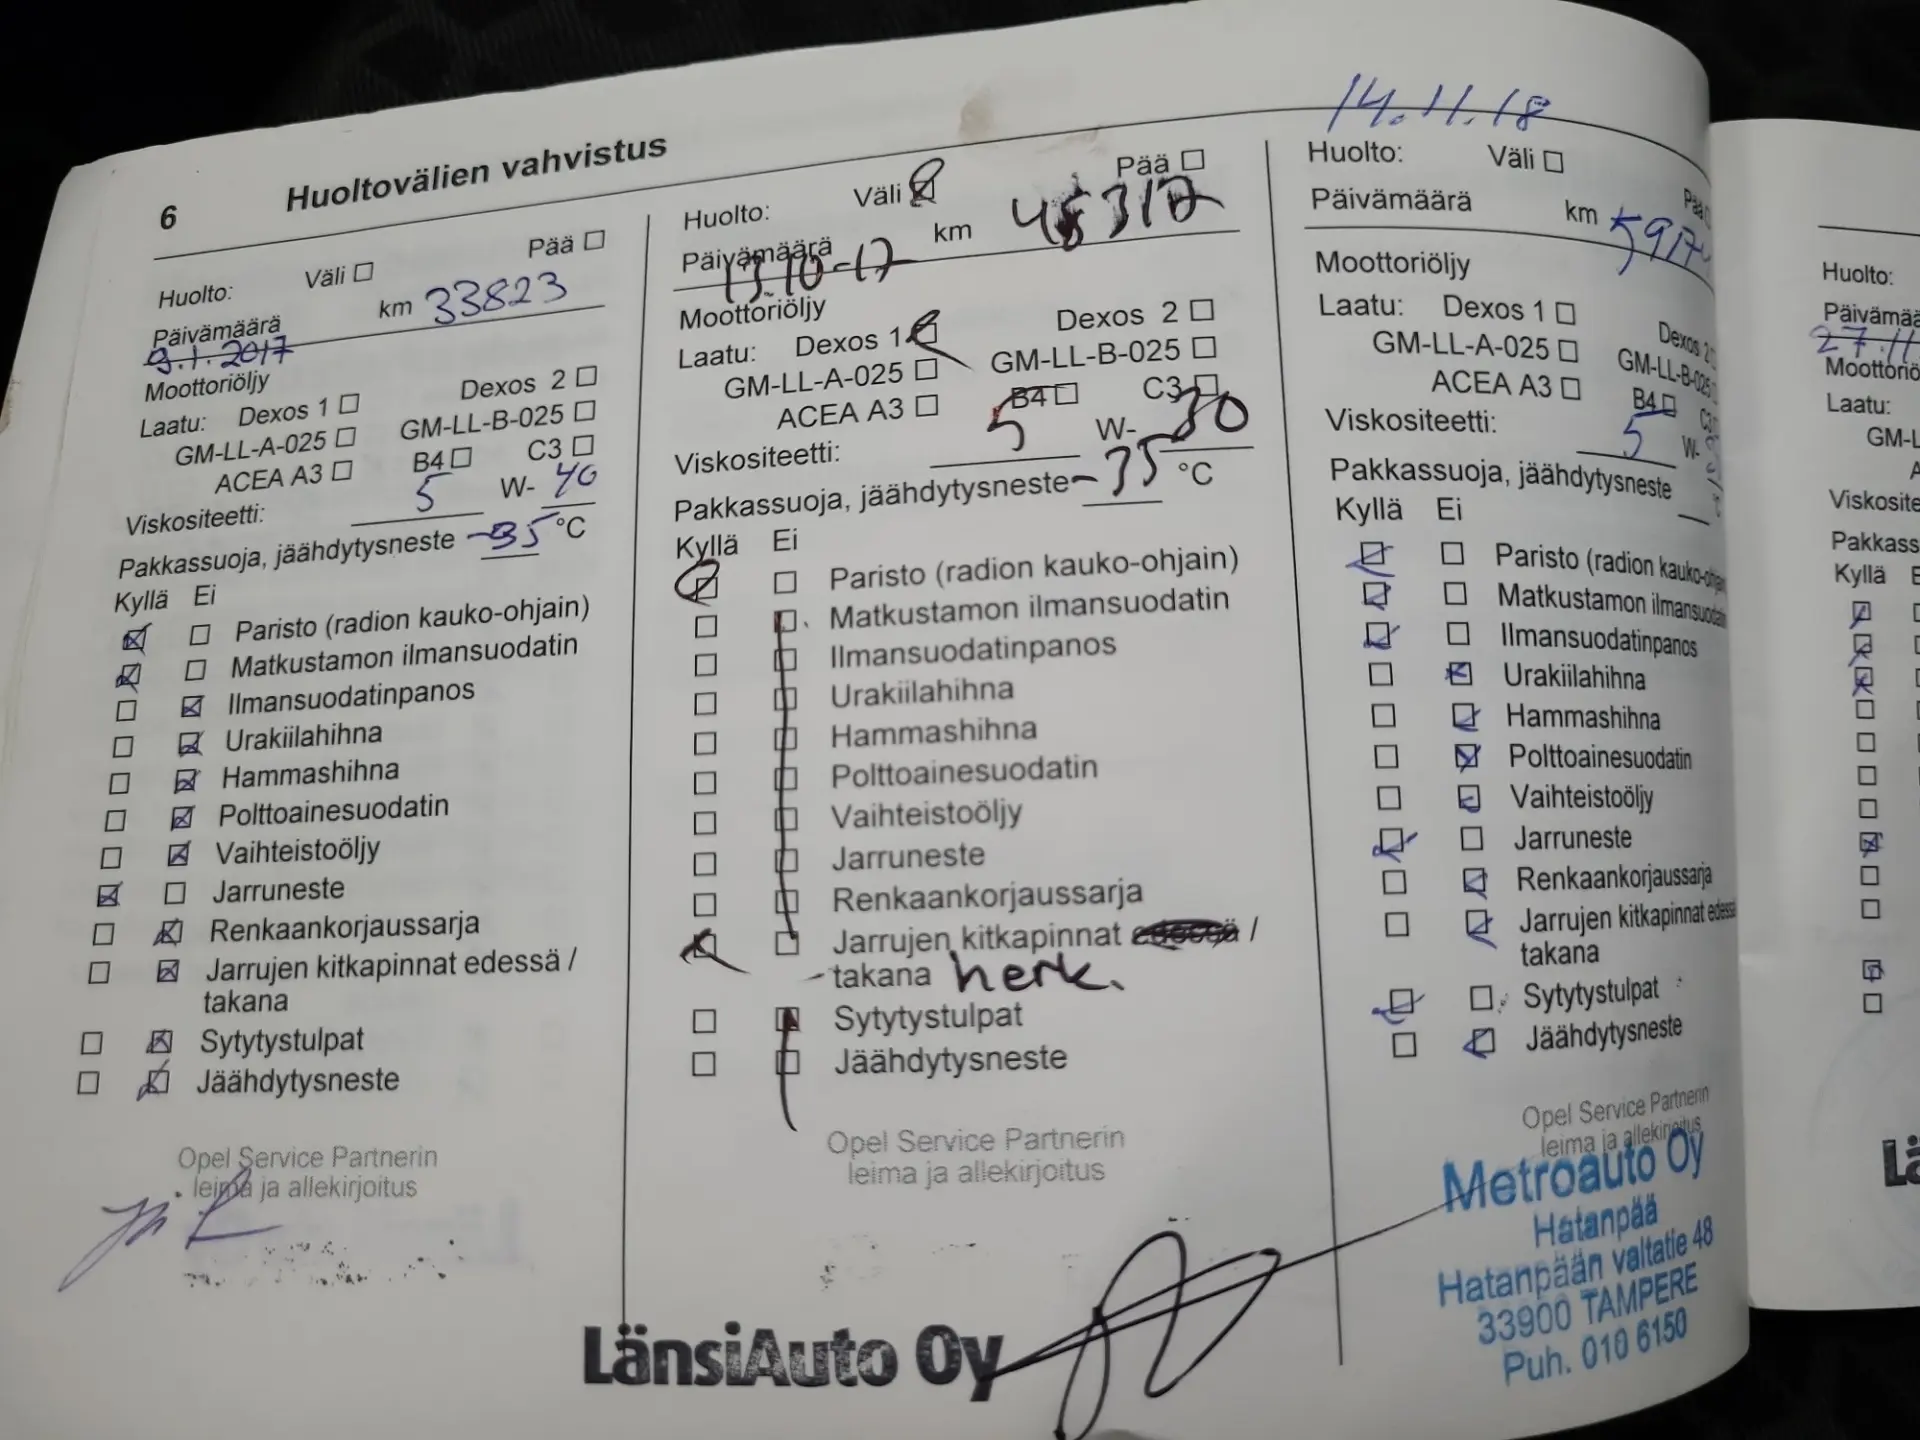 6 Huoltovälien vahvistus
Huolto: Väli Pää
Päivämäärä km 33823
9.1.2017
Moottoriöljy
Laatu: Dexos 1 Dexos 2
GM-LL-A-025 GM-LL-B-025
ACEA A3 B4 C3
Viskositeetti: 5 W- 40
Pakkassuoja, jäähdytysneste -35 °C
Kyllä Ei
Paristo (radion kauko-ohjain)
Matkustamon ilmansuodatin
Ilmansuodatinpanos
Urakiilahihna
Hammashihna
Polttoainesuodatin
Vaihteistoöljy
Jarruneste
Renkaankorjaussarja
Jarrujen kitkapinnat edessä /
takana
Sytytystulpat
Jäähdytysneste
Opel Service Partnerin
leima ja allekirjoitus
Huolto: Väli Pää
Päivämäärä km
13.10-17
Moottoriöljy
Laatu: Dexos 1 Dexos 2
GM-LL-A-025 GM-LL-B-025
ACEA A3 B4 C3
Viskositeetti: 5 W- 30
Pakkassuoja, jäähdytysneste -35 °C
Kyllä Ei
Paristo (radion kauko-ohjain)
Matkustamon ilmansuodatin
Ilmansuodatinpanos
Urakiilahihna
Hammashihna
Polttoainesuodatin
Vaihteistoöljy
Jarruneste
Renkaankorjaussarja
Jarrujen kitkapinnat edessä /
takana herk.
Sytytystulpat
Jäähdytysneste
Opel Service Partnerin
leima ja allekirjoitus
LänsiAuto Oy
14.11.18
Huolto: Väli Pää
Päivämäärä km
Moottoriöljy
Laatu: Dexos 1 Dexos 2
GM-LL-A-025 GM-LL-B-025
ACEA A3 B4 C3
Viskositeetti: 5 W-
Pakkassuoja, jäähdytysneste
Kyllä Ei
Paristo (radion kauko-ohjain
Matkustamon ilmansuodatin
Ilmansuodatinpanos
Urakiilahihna
Hammashihna
Polttoainesuodatin
Vaihteistoöljy
Jarruneste
Renkaankorjaussarja
Jarrujen kitkapinnat edessä
takana
Sytytystulpat
Jäähdytysneste
Opel Service Partnerin
leima ja allekirjoitus
Metroauto Oy
Hatanpää
Hatanpään valtatie 48
33900 TAMPERE
Puh. 010 6150
Huolto:
Päivämää
27.11
Moottoriö
Laatu:
GM-L
A
Viskosite
Pakkass
Kyllä E
Lä